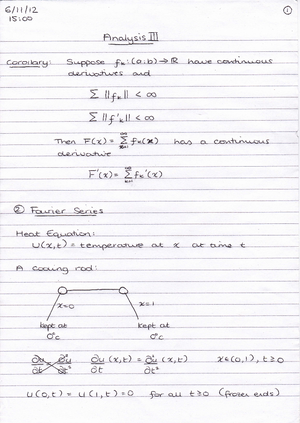 6/11/12
15:00
①
Analysis III
Corollary: Suppose fₖ:(a,b)→ℝ have continuous
derivatives and
Σ ||fₖ|| < ∞
Σ ||f'ₖ|| < ∞
Then F(x) = Σ fₖ(x) has a continuous
derivative
F'(x) = Σ fₖ'(x)
② Fourier Series
Heat Equation:
U(x,t) = temperature at x at time t
A cooling rod:
x=0 x=1
kept at kept at
0°c 0°c
∂u/∂t (x,t) = ∂²u/∂t² (x,t) x∈(0,1), t≥0
U(0,t) = U(1,t) = 0 for all t≥0 (frozen ends)